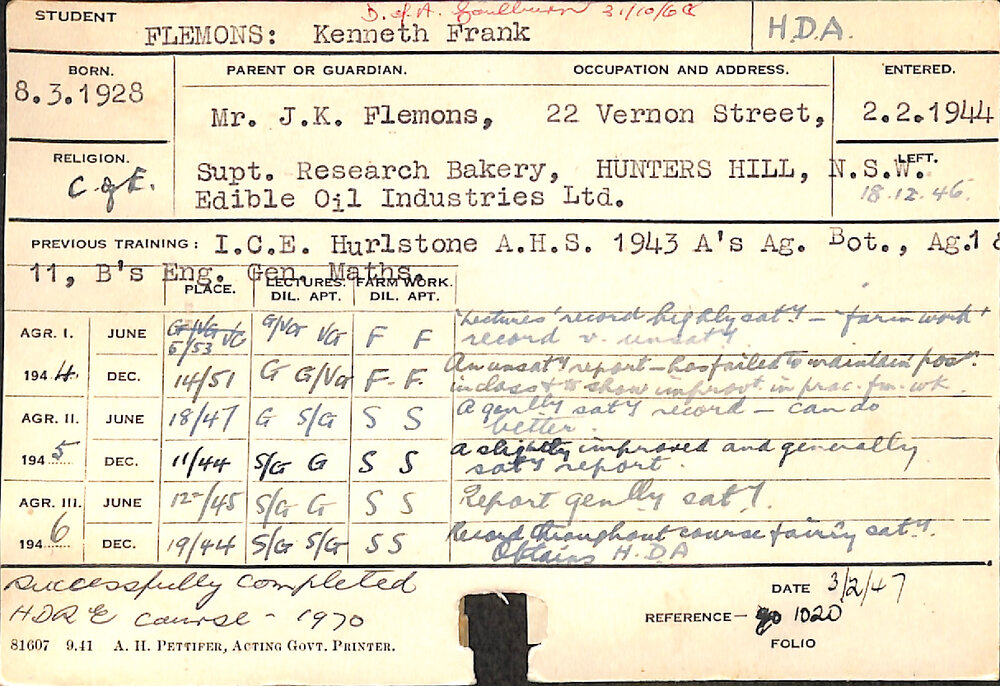 D. of A. Goulburn 31/10/68
STUDENT
FLEMONS: Kenneth Frank H.D.A.
BORN. PARENT OR GUARDIAN. OCCUPATION AND ADDRESS. ENTERED.
8.3.1928
Mr. J.K. Flemons, 22 Vernon Street, 2.2.1944
RELIGION. LEFT.
C of E. Supt. Research Bakery, HUNTERS HILL, N.S.W.
Edible Oil Industries Ltd. 18.12.46.
PREVIOUS TRAINING: I.C.E. Hurlstone A.H.S. 1943 A's Ag. Bot., Ag.1 &
11, B's Eng. Gen. Maths.
PLACE. LECTURES. FARM WORK.
DIL. APT. DIL. APT.
AGR. I. JUNE G/VG VG 5/53 G/VG VG F F 'Lectures' record highly sat'y – 'farm work'
record v. unsat'y
1944. DEC. 14/51 G G/VG F F. An unsat'y report – has failed to maintain posn.
in class & to show improvt. in prac. fm. wk.
AGR. II. JUNE 18/47 G S/G S S A gen'lly sat'y record – can do
better.
1945 DEC. 11/44 S/G G S S A slightly improved and generally
sat'y report.
AGR. III. JUNE 12=/45 S/G G S S Report gen'lly sat'y.
1946 DEC. 19/44 S/G S/G S S Record throughout course fairly sat'y.
Obtains H.D.A
successfully completed
HDRE course - 1970
DATE 3/2/47
REFERENCE— 1020
FOLIO
81607 9.41 A. H. PETTIFER, ACTING GOVT. PRINTER.